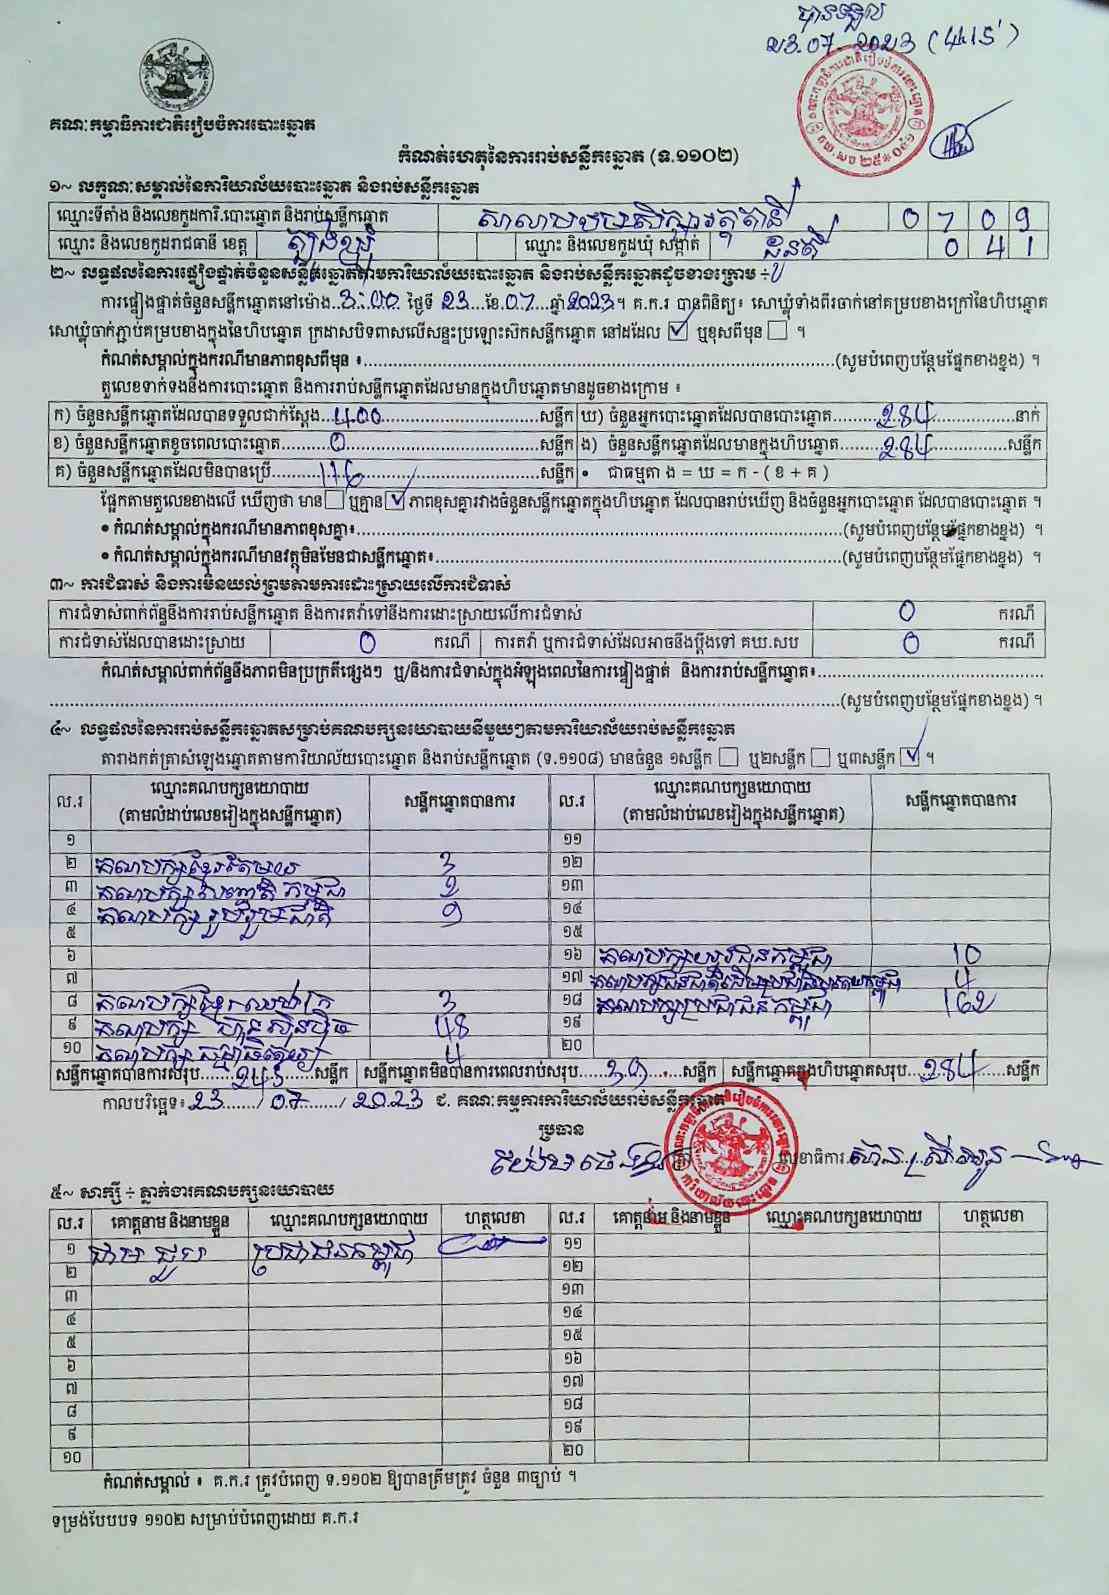 បានទទួល
២៣.07.2023 (4:15)
គណៈកម្មាធិការជាតិរៀបចំការបោះឆ្នោត
កំណត់ហេតុនៃការរាប់សន្លឹកឆ្នោត (ទ.១១០២)
១~ លក្ខណៈសម្គាល់នៃការិយាល័យបោះឆ្នោត និងរាប់សន្លឹកឆ្នោត
ឈ្មោះទីតាំង និងលេខកូដការិ.បោះឆ្នោត និងរាប់សន្លឹកឆ្នោត សាលាបឋមសិក្សាវត្ត 0 7 0 9
ឈ្មោះ និងលេខកូដរាជធានី ខេត្ត ត្បូងឃ្មុំ ឈ្មោះ និងលេខកូដឃុំ សង្កាត់ ដូនតី 0 4 1
២~ លទ្ធផលនៃការផ្ទៀងផ្ទាត់ចំនួនសន្លឹកឆ្នោតតាមការិយាល័យបោះឆ្នោត និងរាប់សន្លឹកឆ្នោតដូចខាងក្រោម ÷
ការផ្ទៀងផ្ទាត់ចំនួនសន្លឹកឆ្នោតនៅម៉ោង 3:00 ថ្ងៃទី 23 ខែ 07 ឆ្នាំ 2023 ។ គ.ក.រ បានពិនិត្យ៖ សោឃ្លុំទាំងពីរចាក់នៅគម្របខាងក្រៅនៃហិបឆ្នោត
សោឃ្លុំចាក់ភ្ជាប់គម្របខាងក្នុងនៃហិបឆ្នោត ក្រដាសបិទពាសលើសន្ទះប្រឡោះស៊កសន្លឹកឆ្នោត នៅដដែល ☑ ឬខុសពីមុន ☐ ។
កំណត់សម្គាល់ក្នុងករណីមានភាពខុសពីមុន ៖ (សូមបំពេញបន្ថែមផ្នែកខាងខ្នង) ។
តួលេខទាក់ទងនឹងការបោះឆ្នោត និងការរាប់សន្លឹកឆ្នោតដែលមានក្នុងហិបឆ្នោតមានដូចខាងក្រោម ៖
ក) ចំនួនសន្លឹកឆ្នោតដែលបានទទួលជាក់ស្តែង 400 សន្លឹក ឃ) ចំនួនអ្នកបោះឆ្នោតដែលបានបោះឆ្នោត 284 នាក់
ខ) ចំនួនសន្លឹកឆ្នោតខូចពេលបោះឆ្នោត 0 សន្លឹក ង) ចំនួនសន្លឹកឆ្នោតដែលមានក្នុងហិបឆ្នោត 284 សន្លឹក
គ) ចំនួនសន្លឹកឆ្នោតដែលមិនបានប្រើ 116 សន្លឹក • ជាធម្មតា ង = ឃ = ក - ( ខ + គ )
ផ្អែកតាមតួលេខខាងលើ ឃើញថា មាន ☐ ឬគ្មាន ☑ ភាពខុសគ្នារវាងចំនួនសន្លឹកឆ្នោតក្នុងហិបឆ្នោត ដែលបានរាប់ឃើញ និងចំនួនអ្នកបោះឆ្នោត ដែលបានបោះឆ្នោត ។
• កំណត់សម្គាល់ក្នុងករណីមានភាពខុសគ្នា៖ (សូមបំពេញបន្ថែមផ្នែកខាងខ្នង) ។
• កំណត់សម្គាល់ក្នុងករណីមានវត្ថុមិនមែនជាសន្លឹកឆ្នោត៖ (សូមបំពេញបន្ថែមផ្នែកខាងខ្នង) ។
៣~ ការជំទាស់ និងការមិនយល់ព្រមតាមការដោះស្រាយលើការជំទាស់
ការជំទាស់ពាក់ព័ន្ធនឹងការរាប់សន្លឹកឆ្នោត និងការតវ៉ាទៅនឹងការដោះស្រាយលើការជំទាស់ 0 ករណី
ការជំទាស់ដែលបានដោះស្រាយ 0 ករណី ការតវ៉ា ឬការជំទាស់ដែលអាចនឹងប្តឹងទៅ គឃ.សប 0 ករណី
កំណត់សម្គាល់ពាក់ព័ន្ធនឹងភាពមិនប្រក្រតីផ្សេងៗ ឬ/និងការជំទាស់ក្នុងអំឡុងពេលនៃការផ្ទៀងផ្ទាត់ និងការរាប់សន្លឹកឆ្នោត៖
(សូមបំពេញបន្ថែមផ្នែកខាងខ្នង) ។
៤~ លទ្ធផលនៃការរាប់សន្លឹកឆ្នោតសម្រាប់គណបក្សនយោបាយនីមួយៗតាមការិយាល័យរាប់សន្លឹកឆ្នោត
តារាងកត់ត្រាសំឡេងឆ្នោតតាមការិយាល័យបោះឆ្នោត និងរាប់សន្លឹកឆ្នោត (ទ.១១០៨) មានចំនួន ១សន្លឹក ☐ ឬ២សន្លឹក ☐ ឬ៣សន្លឹក ☑ ។
ល.រ ឈ្មោះគណបក្សនយោបាយ (តាមលំដាប់លេខរៀងក្នុងសន្លឹកឆ្នោត) សន្លឹកឆ្នោតបានការ ល.រ ឈ្មោះគណបក្សនយោបាយ (តាមលំដាប់លេខរៀងក្នុងសន្លឹកឆ្នោត) សន្លឹកឆ្នោតបានការ
១ ១១
២ គណបក្សខ្មែរតែមួយ 3 ១២
៣ គណបក្ស កម្ពុជា 2 ១៣
៤ គណបក្ស រួបរួមជាតិ 9 ១៤
៥ ១៥
៦ ១៦ គណបក្សយុវជនកម្ពុជា 10
៧ ១៧ គណបក្សជនជាតិដើមប្រជាធិបតេយ្យកម្ពុជា 4
៨ គណបក្សខ្មែរ 3 ១៨ គណបក្សប្រជាជនកម្ពុជា 162
៩ គណបក្ស ហ៊្វុនស៊ិនប៉ិច 48 ១៩
១០ គណបក្ស ធម្មាធិបតេយ្យ 4 ២០
សន្លឹកឆ្នោតបានការសរុប 245 សន្លឹក សន្លឹកឆ្នោតមិនបានការពេលរាប់សរុប 39 សន្លឹក សន្លឹកឆ្នោតក្នុងហិបឆ្នោតសរុប 284 សន្លឹក
កាលបរិច្ឆេទ៖ 23 / 07 / 2023 ជ. គណៈកម្មការការិយាល័យរាប់សន្លឹកឆ្នោត
ប្រធាន
លេខាធិការ
៥~ សាក្សី ÷ ភ្នាក់ងារគណបក្សនយោបាយ
ល.រ គោត្តនាម និងនាមខ្លួន ឈ្មោះគណបក្សនយោបាយ ហត្ថលេខា ល.រ គោត្តនាម និងនាមខ្លួន ឈ្មោះគណបក្សនយោបាយ ហត្ថលេខា
១ ប្រជាជនកម្ពុជា ១១
២ ១២
៣ ១៣
៤ ១៤
៥ ១៥
៦ ១៦
៧ ១៧
៨ ១៨
៩ ១៩
១០ ២០
កំណត់សម្គាល់ ៖ គ.ក.រ ត្រូវបំពេញ ទ.១១០២ ឱ្យបានត្រឹមត្រូវ ចំនួន ៣ច្បាប់ ។
ទម្រង់បែបបទ ១១០២ សម្រាប់បំពេញដោយ គ.ក.រ